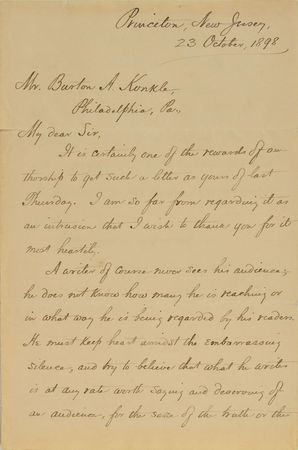 Princeton, New Jersey,
23 October, 1898
Mr. Burton A. Konkle,
Philadelphia, Pa.
My dear Sir,
It is certainly one of the rewards of au-
thorship to get such a letter as yours of last
Thursday. I am so far from regarding it as
an intrusion that I wish to thank you for it
most heartily.
A writer of course never sees his audience;
he does not know how many he is reaching or
in what way he is being regarded by his readers.
He must keep heart amidst the embarrassing
silence, and try to believe that what he writes
is at any rate worth saying and deserving of
an audience, for the sake of the truth or the